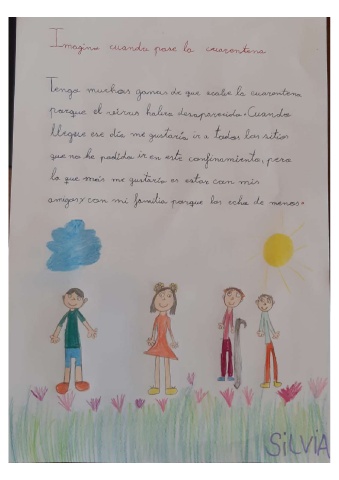 Imagino cuando pase la cuarentena
Tengo muchas ganas de que acabe la cuarentena
porque el virus habra desaparecido. Cuando
llegue ese día me gustaría ir a todos los sitios
que no he podido ir en este confinamiento, pero
lo que más me gustaría es estar con mis
amigos y con mi familia porque los echo de menos.
SiLVIA